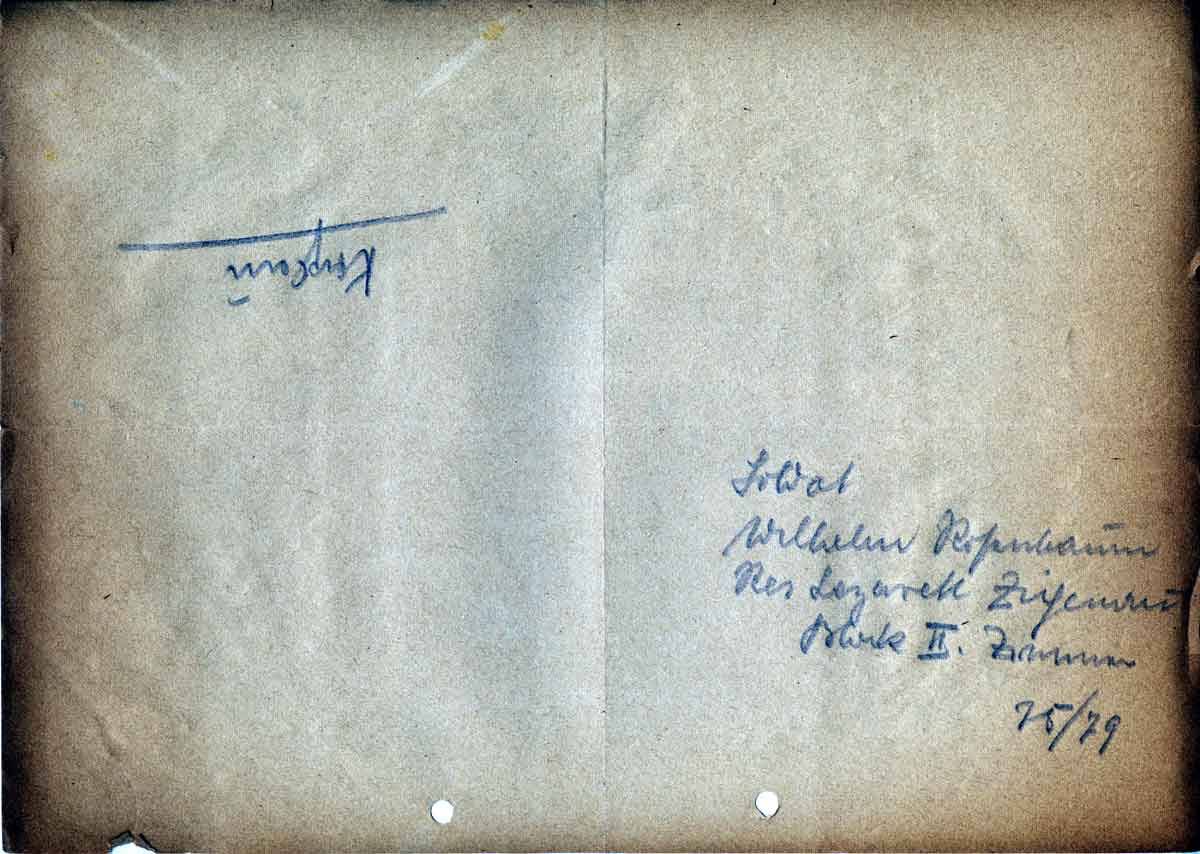 Soldat
Wilhelm Rosenbaum
Res Lazarett
Block II. Zimmer
75/79